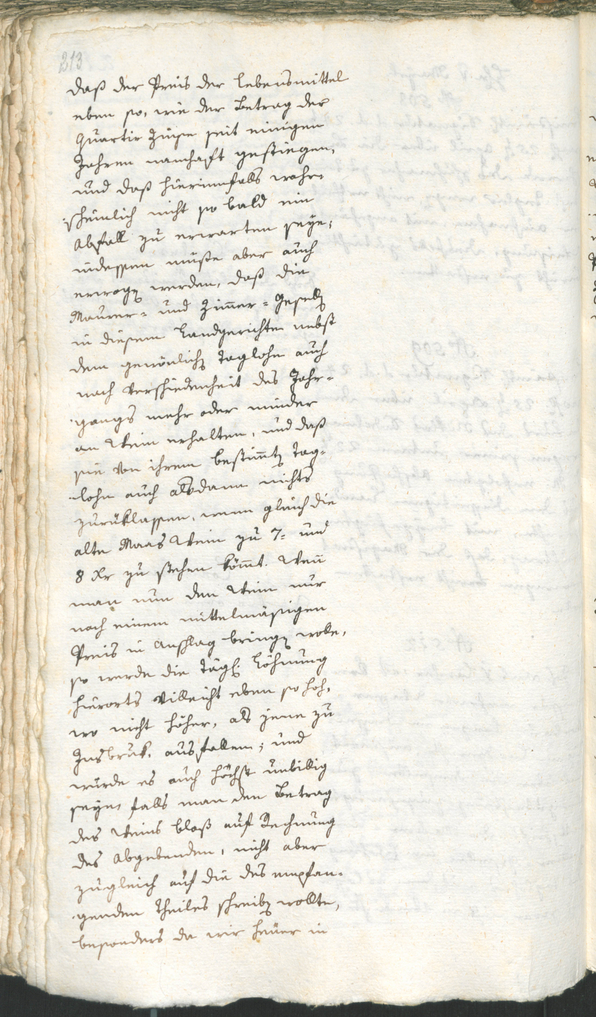 213
daß der Preis der Lebensmittel
eben so, wie der Betrag der
Quartir Zinße seit einigen
Jahren namhaft gestiegen,
und daß hierinnfalls wahr=
=scheinlich nicht so bald ein
Abfall zu erwarten seye;
indessen müße aber auch
erwogen werden, daß die
Maurer= und Zimmer=Gesellen
in diesem Landgerichte nebst
dem gewönlichen Taglohn auch
nach Verschiedenheit des Jahr=
=gangs mehr oder minder
an Wein erhalten, und daß
sie von ihrem bestimmten Tag=
=lohn auch alsdann nichts
zurüklassen, wenn gleich die
alte Maas Wein zu 7= und
8 Xr zu stehen kömmt. Wenn
man nun den Wein nur
nach einem mittelmäsigen
Preis in Anschlag bringen wolle,
so werde die tägl. Löhnung
hierorts villeicht eben so hoh,
wo nicht höher, als jene zu
Insbruk, ausfallen; und
würde es auch höchst unbillig
seyn, falls man den Betrag
des Weins bloß auf Rechnung
des Abgebenden, nicht aber
zugleich auf die des empfan=
=genden Theiles schreiben wollte,
besonders da wir heüer in